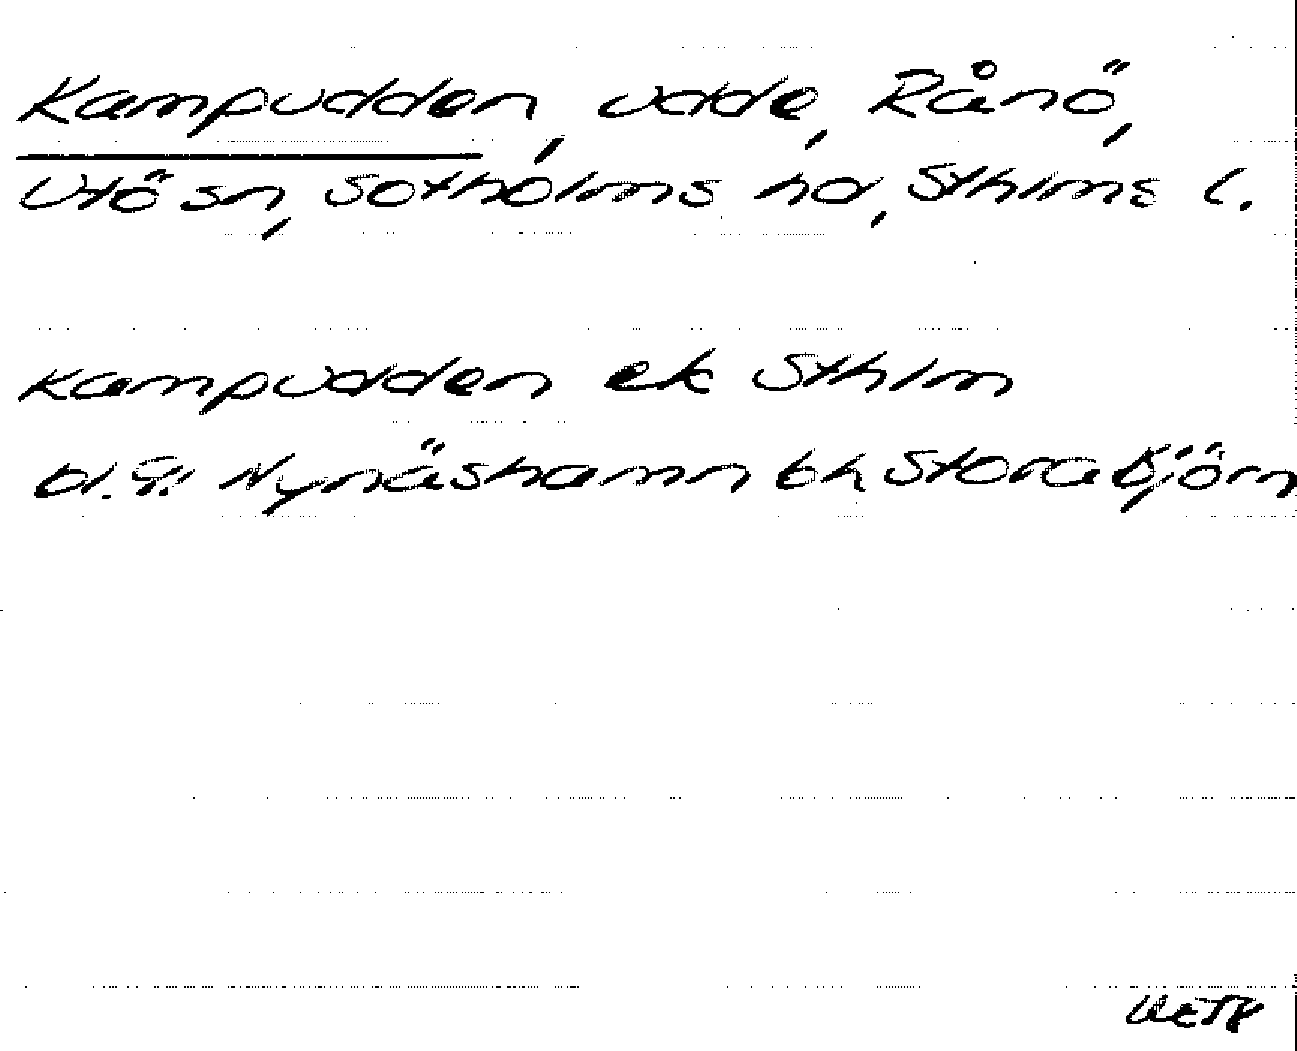 Kampudden, udde, Rånö,
Utö sn, Sotholms hd, Sthlms l.
Kampudden ek Sthlm
bl. 9. Nynäshamn bh Stora Björn